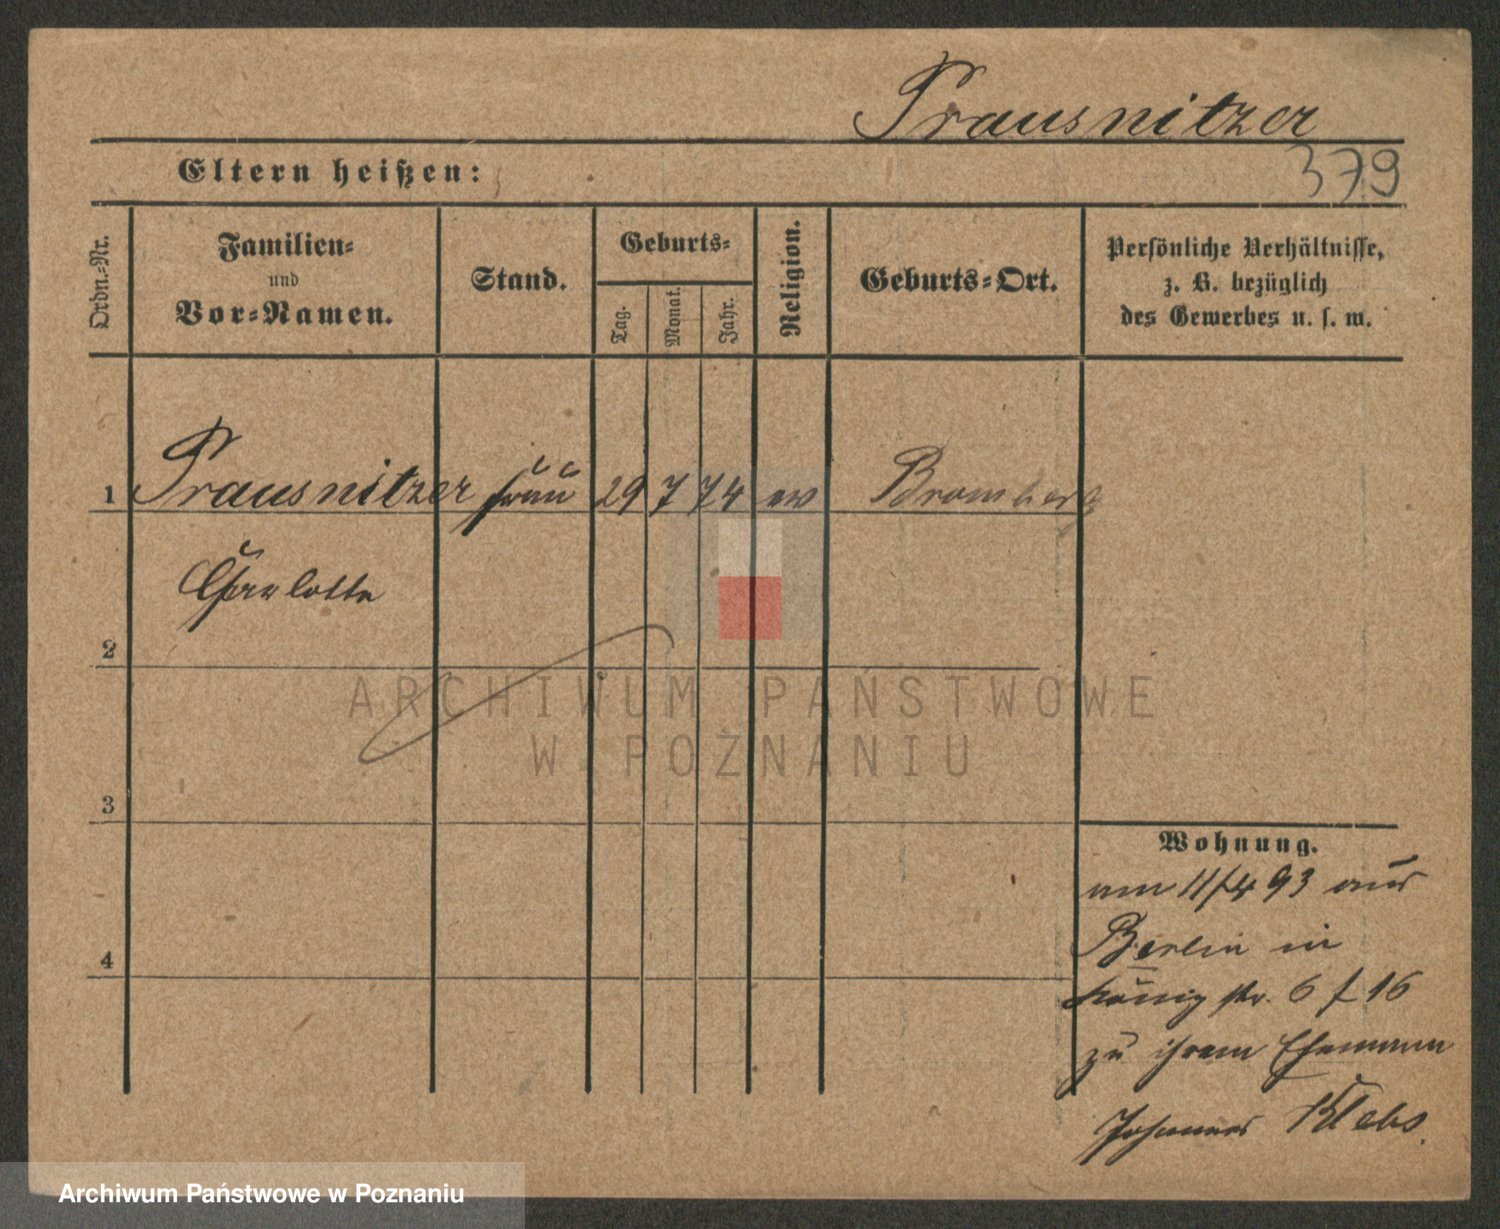 Prausnitzer
379
Eltern heißen:
Ordn.-Nr.
Familien-
und
Vor-Namen.
Stand.
Geburts-
Tag.
Monat.
Jahr.
Religion.
Geburts-Ort.
Persönliche Verhältnisse,
z. B. bezüglich
des Gewerbes u. s. w.
1 Prausnitzer Frau 29 7 74 ev Bromberg
Charlotte
2
ARCHIWUM PAŃSTWOWE
W POZNANIU
3
Wohnung.
am 11/4 93 aus
Berlin in
König str. 6 f 16
4
zu ihrem Ehemann
Johannes Klebs.
Archiwum Państwowe w Poznaniu